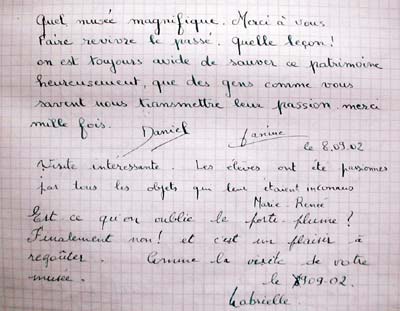 Quel musée magnifique. Merci à vous
faire revivre le passé. Quelle leçon!
on est toujours avide de sauver ce patrimoine
heureusement, que des gens comme vous
savent nous transmettre leur passion. merci
mille fois. Daniel Janine
le 8.09.02
Visite intéressante. Les élèves ont été passionnés
par tous les objets qui leur étaient inconnus
Marie-Renée
Est ce qu'on oublie le porte-plume?
Finalement non! et c'est un plaisir à
regoûter. Comme la visite de votre
musée. le 8/09.02.
Gabrielle.